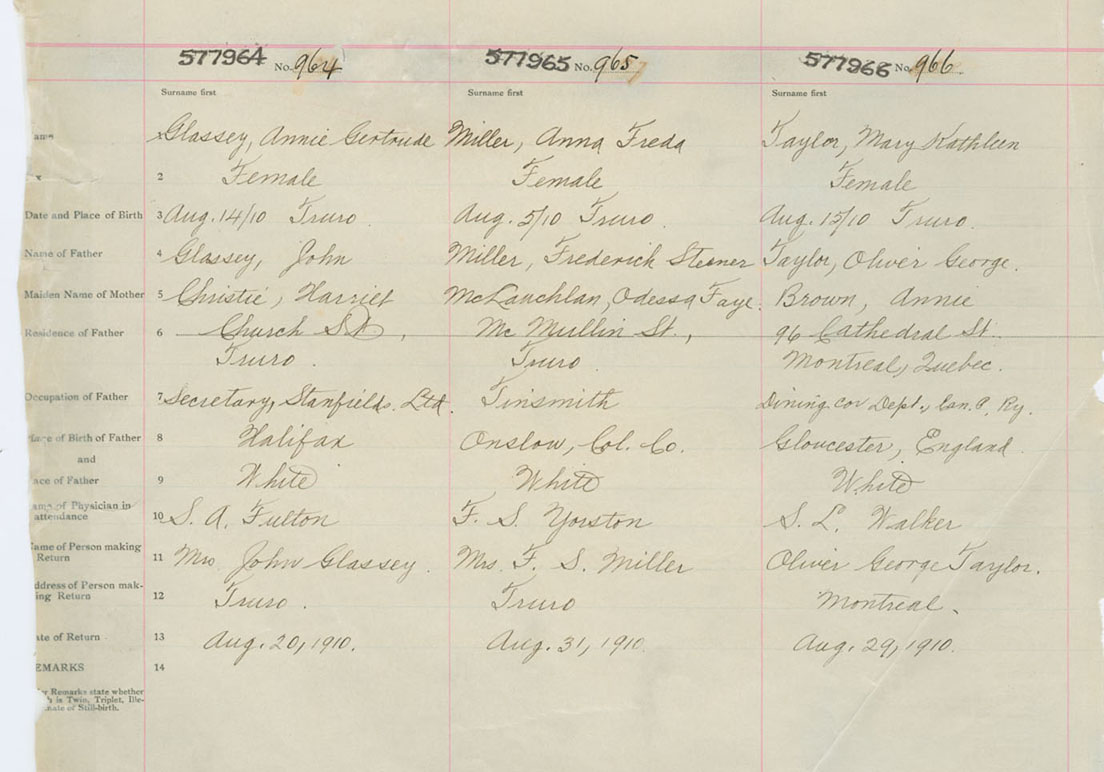 577964 No. 964 577965 No. 965 577966 No. 966
Surname first Surname first Surname first
1 Glassey, Annie Gertrude Miller, Anna Freda Taylor, Mary Kathleen
2 Female Female Female
Date and Place of Birth 3 Aug. 14/10 Truro Aug. 5/10 Truro. Aug. 15/10 Truro.
Name of Father 4 Glassey, John Miller, Frederick Taylor, Oliver George.
Maiden Name of Mother 5 Christie, Harriet McLauchlan, Odessa Faye. Brown, Annie
Residence of Father 6 Church St, Mc Mullin St., 96 Cathedral St.
Truro. Truro Montreal, Quebec.
Occupation of Father 7 Secretary, Stanfields. Ltd. Tinsmith Dining car Dept., Can. P. Ry.
Place of Birth of Father 8 Halifax Onslow, Col. Co. Gloucester, England
and
ace of Father 9 White White White
ame of Physician in
attendance 10 S. A. Fulton F. S. Yorston S. L. Walker
Name of Person making
Return 11 Mrs John Glassey. Mrs. F. S. Miller Oliver George Taylor.
ddress of Person mak-
ing Return 12 Truro. Truro Montreal.
ate of Return 13 Aug. 20, 1910. Aug. 31, 1910. Aug. 29, 1910.
EMARKS 14
er Remarks state whether
h is Twin, Triplet, Ille-
mate of Still-birth.